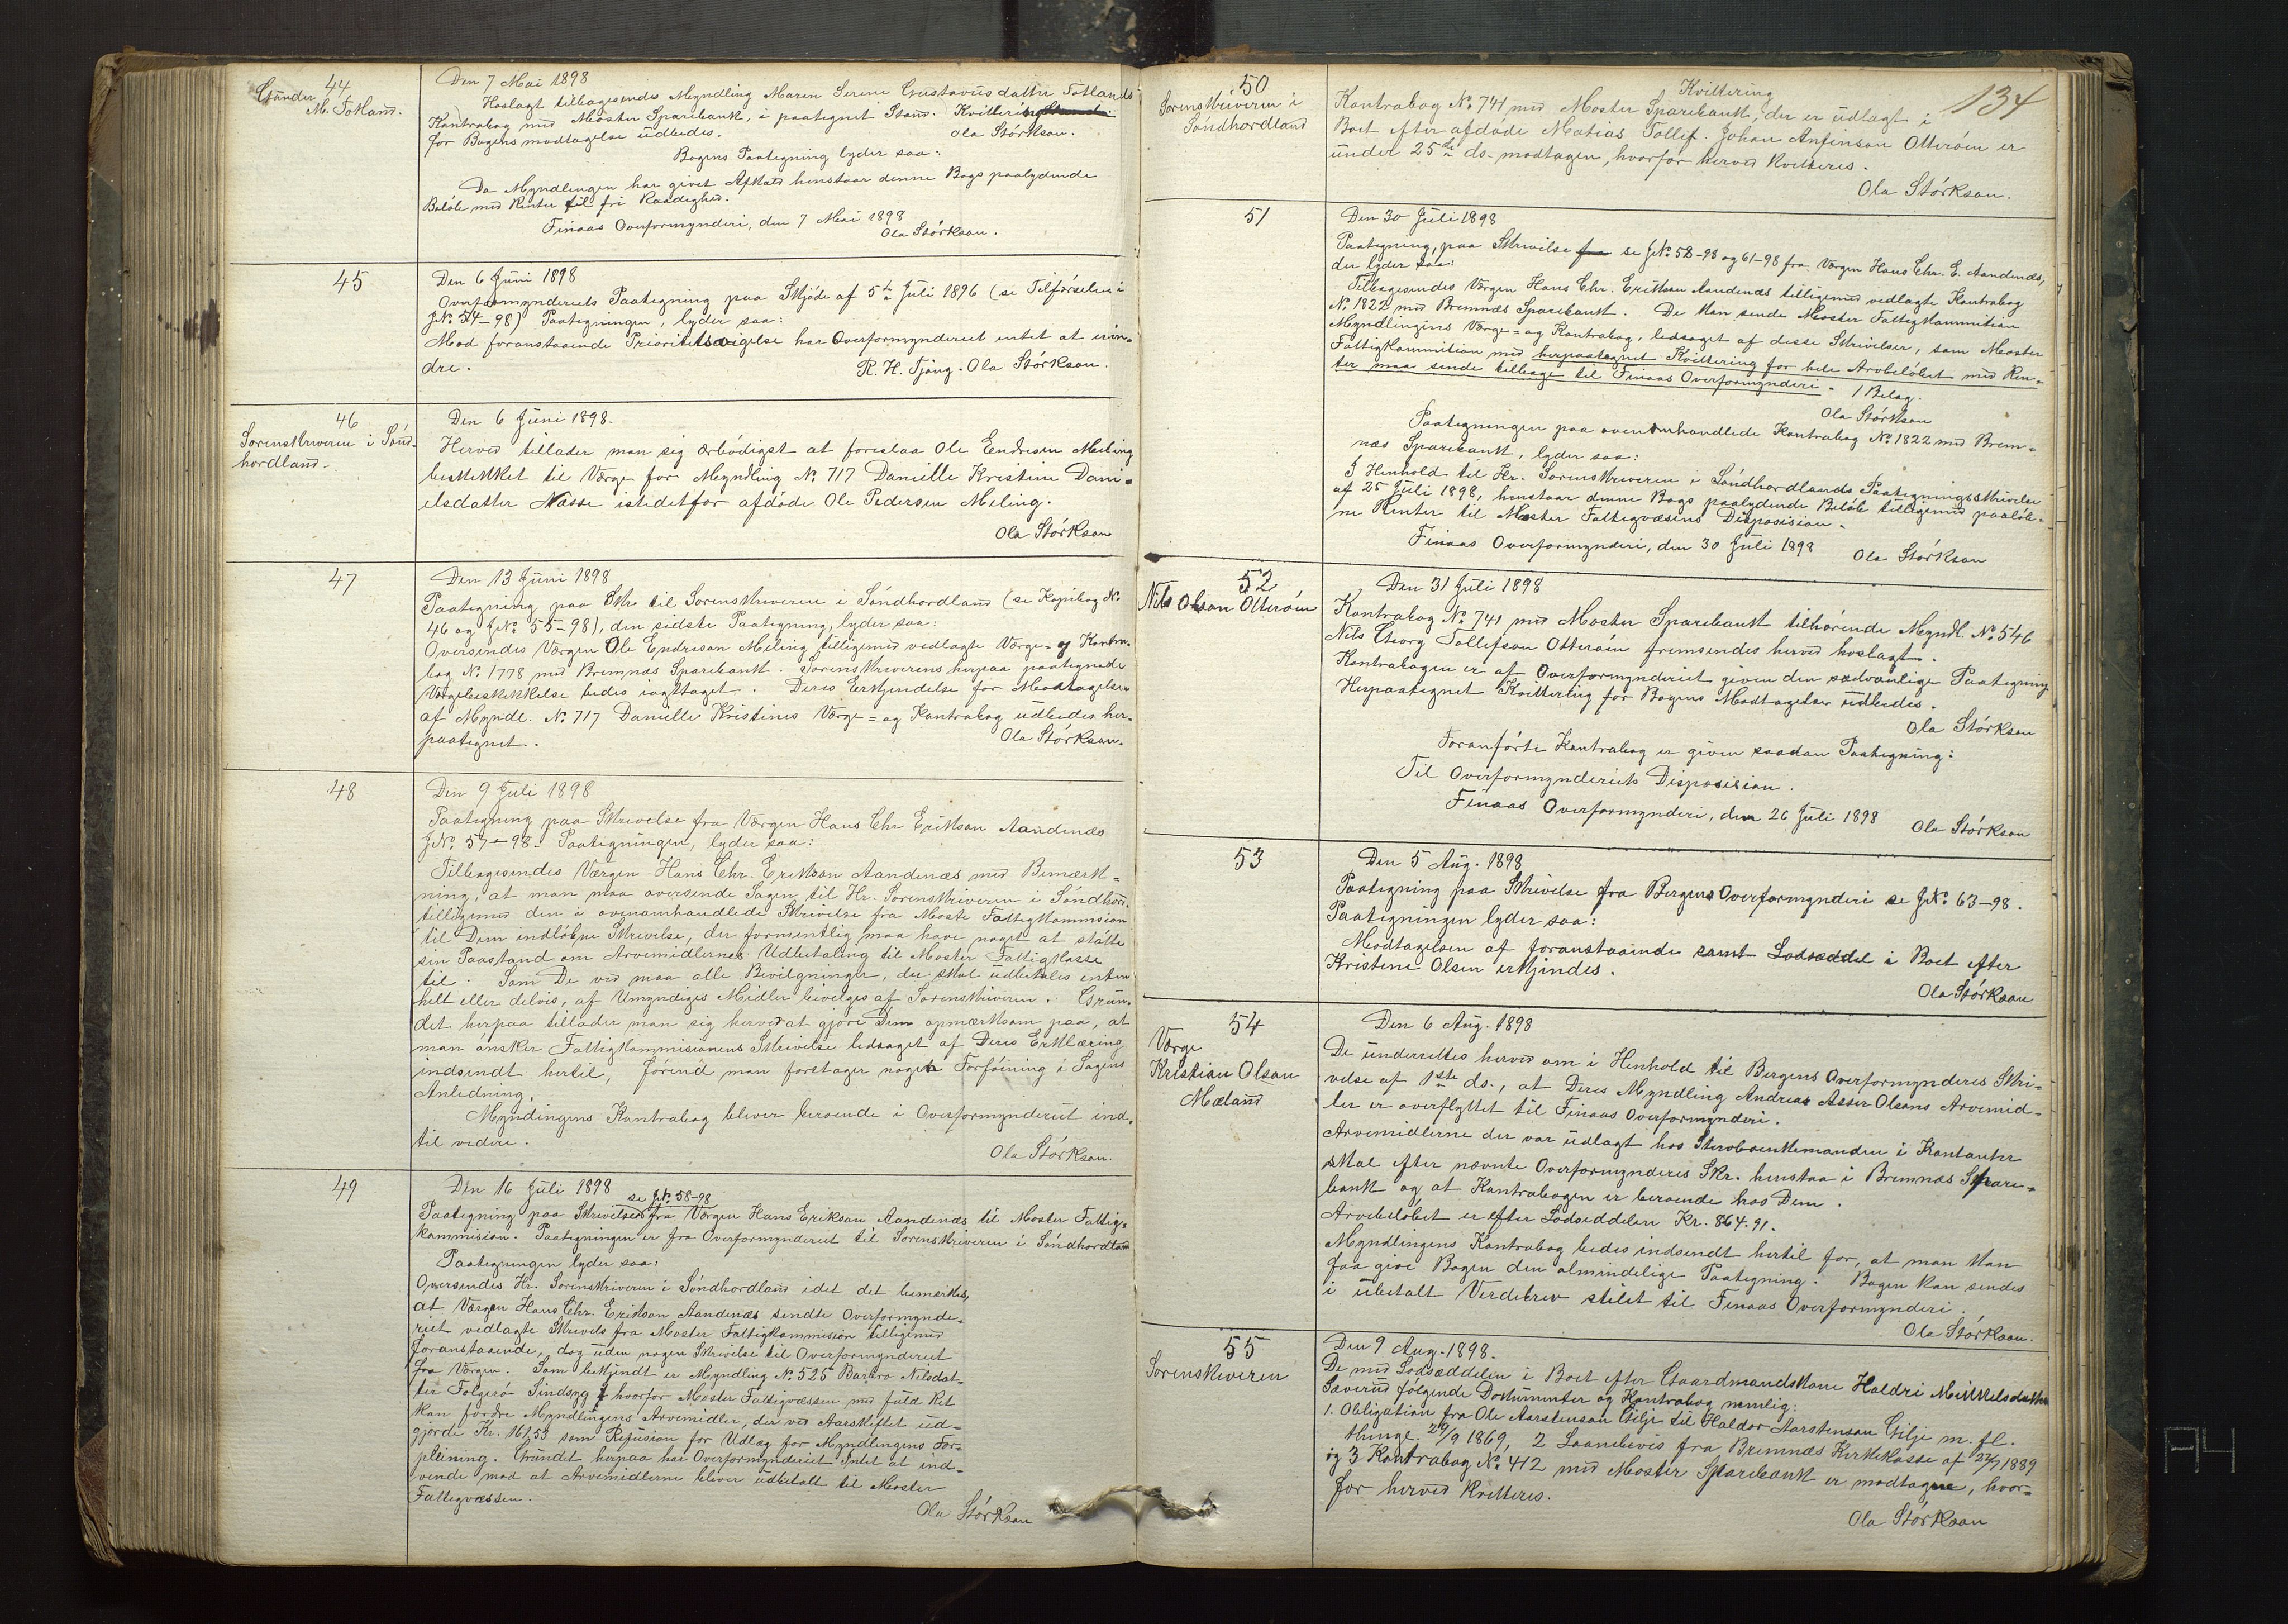 44
Gunder
M. Totland.
Den 7 Mai 1898
Hoslagt tilbagesendes Myndling Maren Serine Gustavusdatter Totlands
Kontrabog med Moster Sparebank, i paategnet Stand. Kvittering
for Bogens modtagelse udbedes. Ola Störkson.
Bogens Paategning lyder saa:
Da Myndlingen har givet Afkald henstaar denne Bogs paalydende
Belöb med Renter til fri Raadighed.
Finaas Overformynderi, den 7 Mai 1898
Ola Störkson.
45
Den 6 Juni 1898
Overformynderiets Paategning paa Skjöde af 5te Juli 1896 (se Tilförselen i
J.No. 54-98) Paategningen, lyder saa:
Mod foranstaaende Prioritetsvigelse har Overformynderiet intet at erin-
dre. R. H. Tjong. Ola Störkson.
46
Sorenskriveren i Sönd-
hordland.
Den 6 Juni 1898.
Herved tillader man sig ærbödigst at foreslaa Ole Endresen Meling
beskikket til Værge for Myndling No. 717 Danielle Kristine Dani-
elsdatter Nasse istedetfor afdöde Ole Pedersen Meling.
Ola Störkson
47
Den 13 Juni 1898
Paategning paa Skr. til Sorenskriveren i Söndhordland (se Kopibog No.
46 og J.No. 55-98), den sidste Paategning, lyder saa:
Oversendes Værgen Ole Endresen Meling tilligemed vedlagte Værge- og Kontra-
bog No. 1778 med Bremnæs Sparebank. Sorenskriverens herpaa paategnede
Værgebeskikkelse bedes iagttaget. Deres Erkjendelse for Modtagelsen
af Myndl. No. 717 Danielle Kristines Værge= og Kontrabog udbedes her-
paategnet. Ola Störkson.
48
Den 9 Juli 1898
Paategning paa Skrivelse fra Værgen Hans Chr Erikson Aandenæs
J.No. 57-98. Paategningen, lyder saa:
Tilbagesendes Værgen Hans Chr. Erikson Aandenæs med Bemærk-
ning, at man maa oversende Sagen til Hr. Sorenskriveren i Söndhord.
tilligemed den i ovenomhandlede Skrivelse fra Moster Fattigkommision
til Dem indlöbne Skrivelse, der formentlig maa have noget at stötte
sin Paastand om Arvemidlernes Udbetaling til Moster Fattigkasse
til. Som De ved maa alle Bevilgninger, der skal udbetales enten
helt eller delvis, af Umyndiges Midler bevilges af Sorenskriveren. Grun-
det herpaa tillader man sig herved at gjöre Dem opmærksom paa, at
man önsker Fattigkommisionens Skrivelse ledsaget af Deres Erklæring
indsendt hertil, förend man foretager nogen Forföining i Sagens
Anledning.
Myndingens Kontrabog bliver beroende i Overformynderiet ind-
til videre.
Ola Störkson.
49
Den 16 Juli 1898
se J.No. 58-98
Paategning paa Skrivelser fra Værgen Hans Erikson Aandenæs til Moster Fattig-
kommision. Paategningen er fra Overformynderiet til Sorenskriveren i Söndhordland
Paategningen lyder saa:
Oversendes Hr. Sorenskriveren i Söndhordland idet det bemerkes,
at Værgen Hans Chr. Erikson Aandenæs sendte Overformynde-
riet vedlagte Skrivels fra Moster Fattigkommision tilligemed
foranstaaende, dog uden nogen Skrivelse til Overformynderiet
fra Værgen. Som bekjendt er Myndling No. 525 Barbro Nilsdat-
ter Folgerö Sindsyg hvorfor Moster Fattigvæssen med fuld Ret
kan fordre Myndlingens Arvemidler, der ved Aarskiftet ud-
gjorde Kr. 161,53 som Refusion for Udlæg for Myndlingens For-
pleining. Grundet herpaa har Overformynderiet Intet at ind-
vende mod at Arvemidlerne bliver udbetalt til Moster
Fattigvæssen.
Ola Störkson
134
50
Sorenskriveren i
Söndhordland
Kvittering
Kontrabog No. 741 med Moster Sparebank, der er udlagt i
Boet efter afdöde Matias Tollef. Johan Anfinson Otteröen er
under 25de ds. modtagen, hvorfor herved kvitteres.
Ola Störkson.
51
Den 30 Juli 1898
Paategning, paa Skrivelse se J.No. 58-98 og 61-98 fra Værgen Hans Chr. E. Aandenæs,
der lyder saa:
Tilbagesendes Værgen Hans Chr. Erikson Aandenæs tilligemed vedlagte Kontrabog
No. 1822 med Bremnæs Sparebank. De kan sende Moster Fattigkommition
Myndlingens Værge= og Kontrabog, ledsaget af disse Skrivelser, som Moster
Fattigkommition med herpaategnet Kvittering for hele Arvebelöbet med Ren-
ter maa sende tilbage til Finaas Overformynderi. 1 Bilag.
Ola Störkson
Paategningen paa ovenomhandlede Kontrabog No. 1822 med Brem-
næs Sparebank, lyder saa:
I Henhold til Hr. Sorenskriveren i Söndhordlands Paategningsskrivelse
af 25 Juli 1898, henstaar denne Bogs paalydende Belöb tilligemed paalöb-
ne Renter til Moster Fattigvæsens Disposision.
Finaas Overformynderi, den 30 Juli 1898 Ola Störkson
52
Nils Olson Otteröen
Den 31 Juli 1898
Kontrabog No. 741 med Moster Sparebank tilhörende Myndl. No. 546
Nils Georg Tollefson Otteröen fremsendes herved hoslagt.
Kontrabogen er af Overformynderiet given den sædvanlige Paategning
Herpaategnet Kvittering for Bogens Modtagelse udbedes.
Ola Störkson
Foranförte Kontrabog er given saadan Paategning:
Til Overformynderiets Disposision.
Finaas Overformynderi, den 26 Juli 1898 Ola Störkson
53
Den 5 Aug. 1898
Paategning paa Skrivelse fra Bergens Overformynderi se J.No. 63-98.
Paategningen lyder saa:
Modtagelsen af foranstaaende samt Lodseddel i Boet efter
Kristene Olsen erkjindes.
Ola Störkson
54
Værge
Kristian Olson
Mæland
Den 6 Aug. 1898
De underrettes herved om i Henhold til Bergens Overformynderis Skri-
velse af 1ste ds., at Deres Myndling Andreas Asser Olsons Arvemid-
ler er overflyttet til Finaas Overformynderi.
Arvemidlerne der var udlagt hos Sterboenkemanden i Kontanter
skal efter nævnte Overformynderis Skr. henstaa i Bremnæs Spare-
bank og at Kontrabogen er beroende hos Dem.
Arvebelöbet er efter Lodseddelen Kr. 864.91.
Myndlingens Kontrabog bedes indsendt hertil for, at man kan
faa give Bogen den almindelige Paategning. Bogen kan sendes
i ubetalt Verdebrev stilet til Finaas Overformynderi.
Ola Störkson.
55
Sorenskriveren
Den 9 Aug. 1898.
De med Lodseddelen i Boet efter Gaardmandskone Haldri Mikkelsdatter
Sæverud fölgende Dokumenter og Kontrabog nemlig:
1. Obligation fra Ole Aarstenson Gilje til Haldor Aarstenson Gilje m. fl.
thingl. 29/9 1869, 2 Laanebevis fra Bremnæs Kirkekasse af 22/7 1889
og 3 Kontrabog No. 412 med Moster Sparebank er modtagne, hvor-
for herved kvitteres.
Ola Störkson